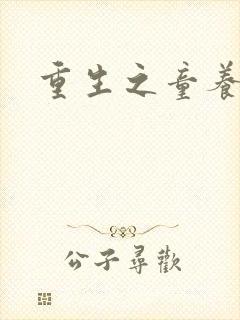 重生之童養
公子尋歡